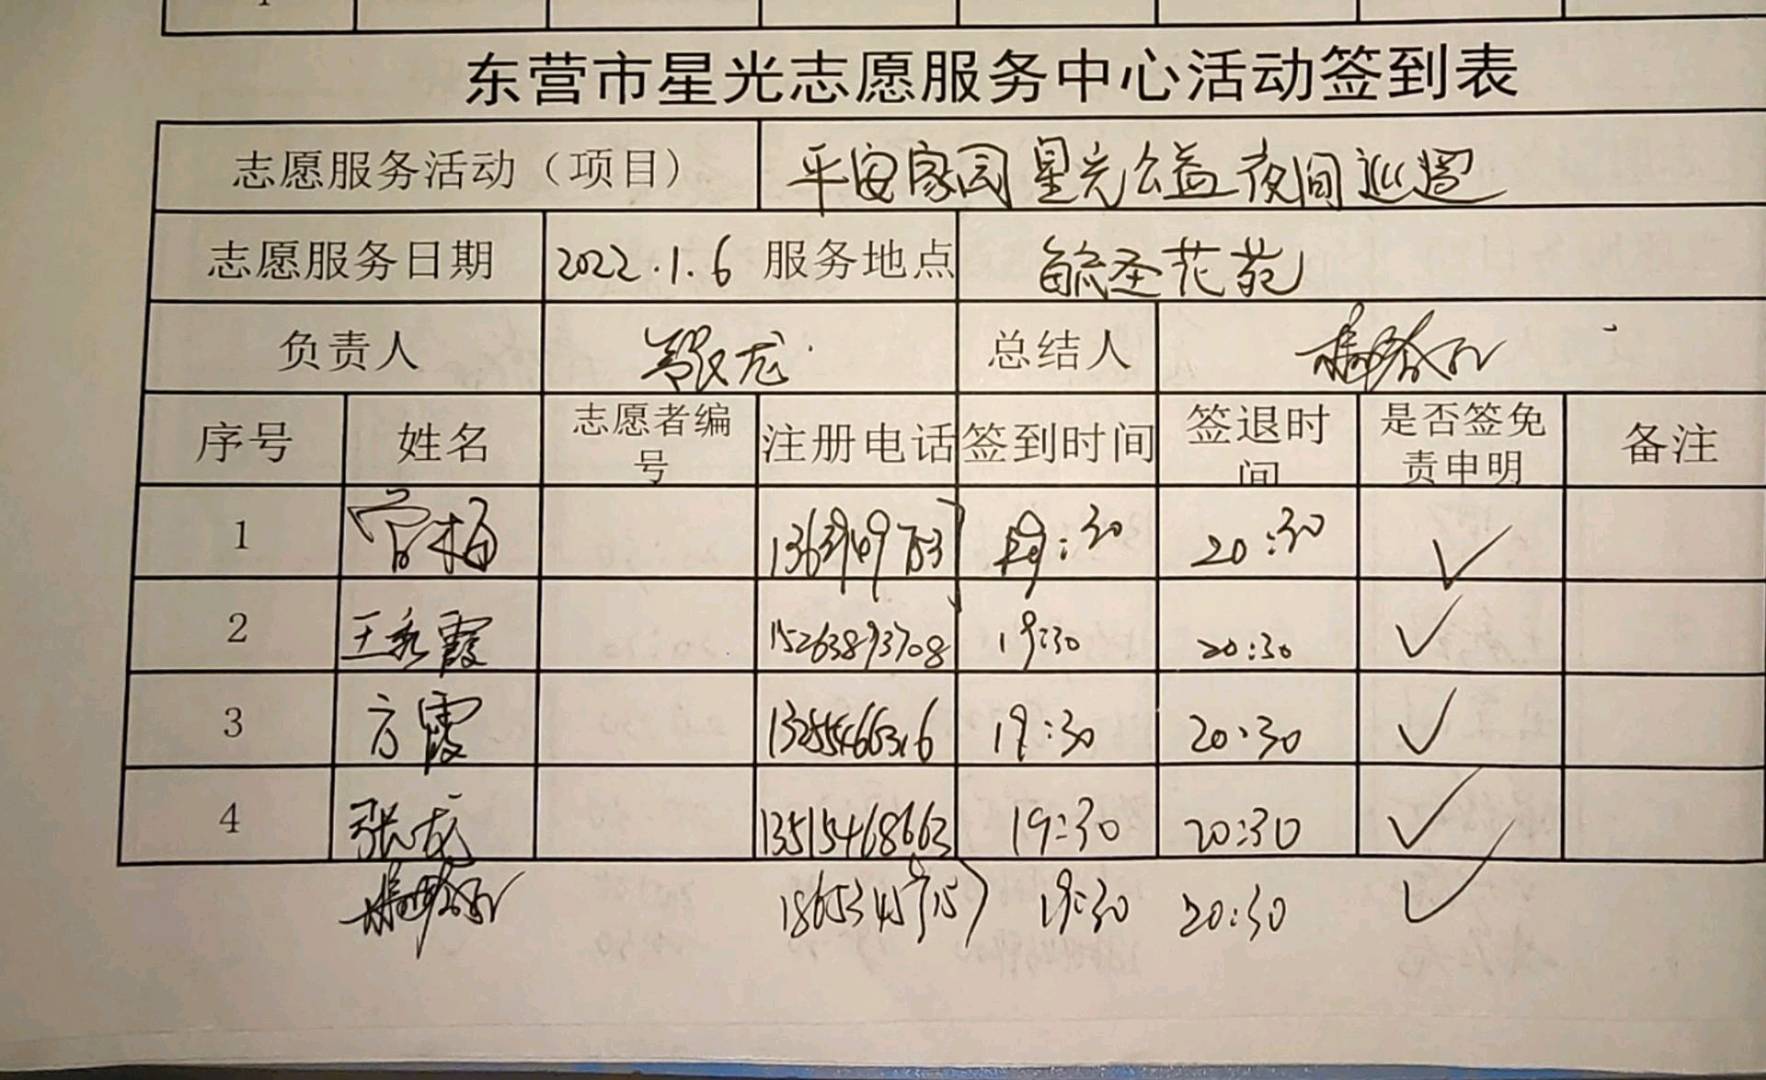 东营市星光志愿服务中心活动签到表
志愿服务活动（项目） 平安家园星光公益夜间巡逻
志愿服务日期 2022.1.6 服务地点 毓圣花苑
负责人 张龙 总结人
序号 姓名 志愿者编号 注册电话 签到时间 签退时间 是否签免责申明 备注
1 管梅 19:30 20:30 ✓
2 王秀霞 15263893708 19:30 20:30 ✓
3 方霞 13255466316 19:30 20:30 ✓
4 张龙 13515468663 19:30 20:30 ✓
19:30 20:30 ✓